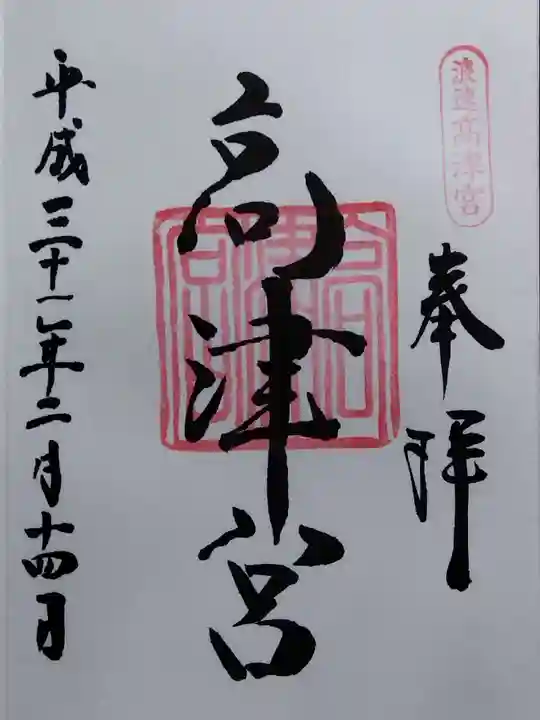 浪速高津宮
奉拝
高津宮
平成三十一年二月十四日